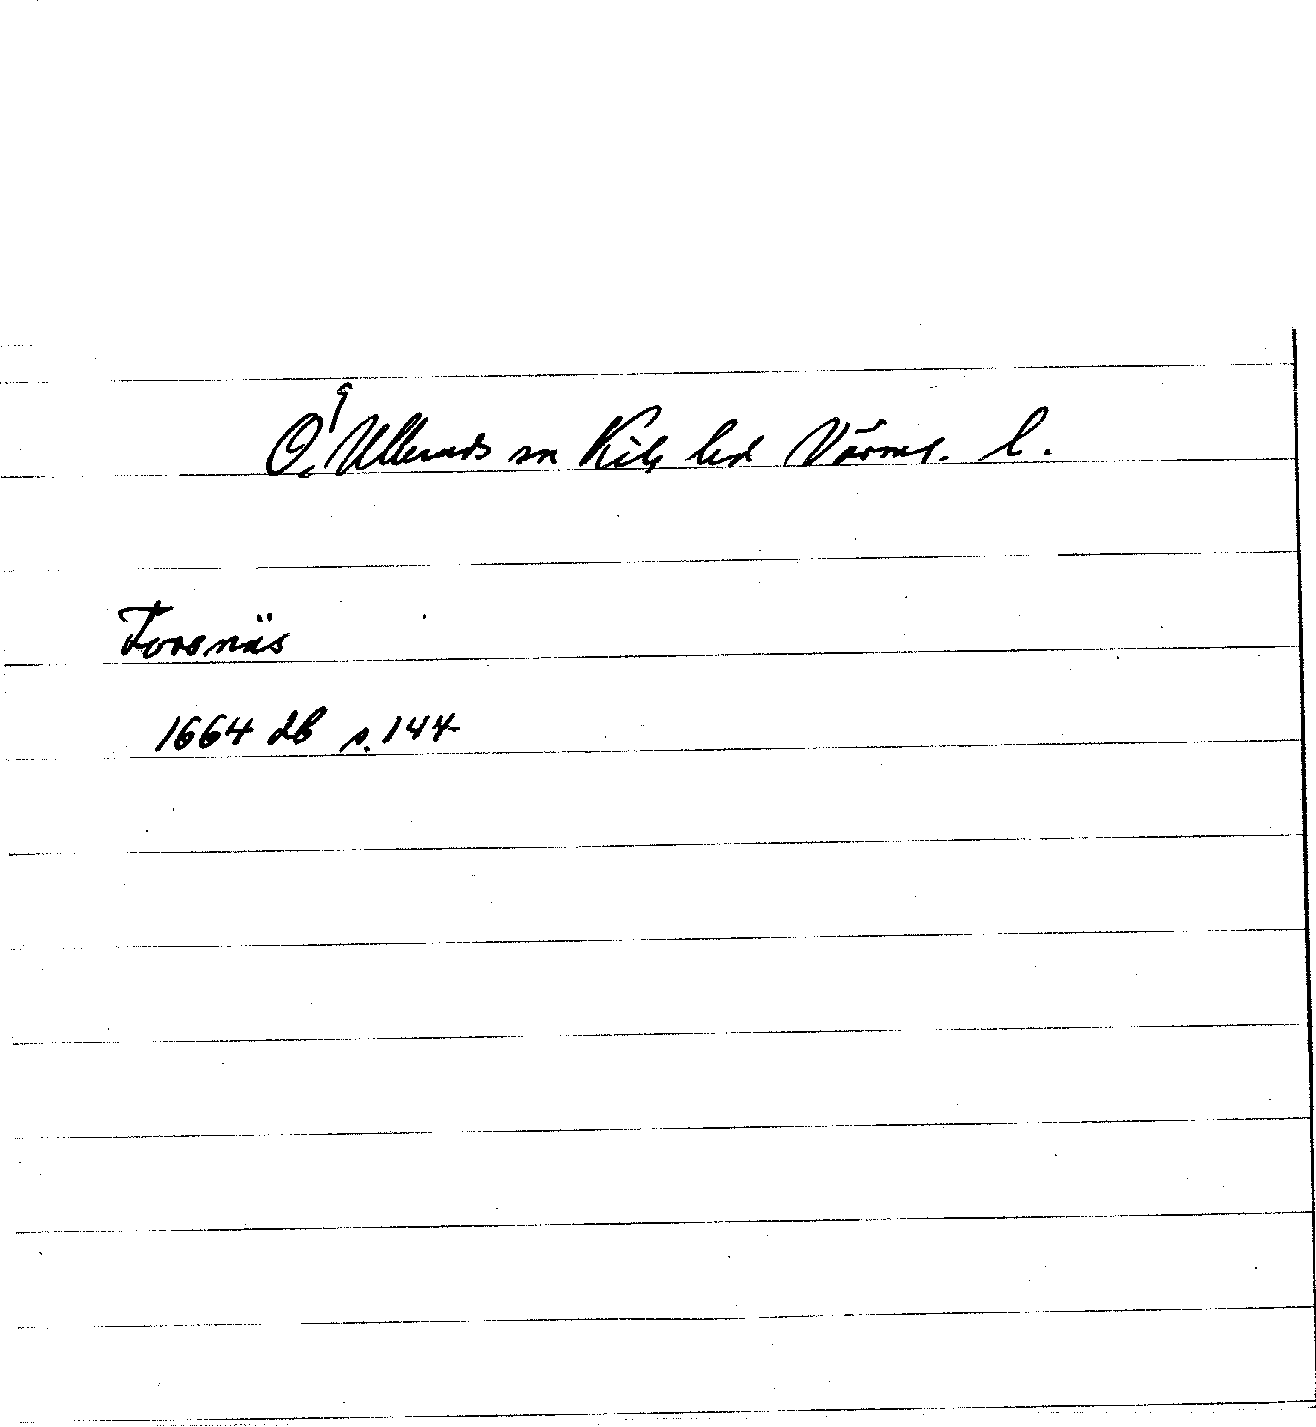 Ö. Ulleruds sn Kils hd Värml. l.
Forsnäs
1664 db s. 144